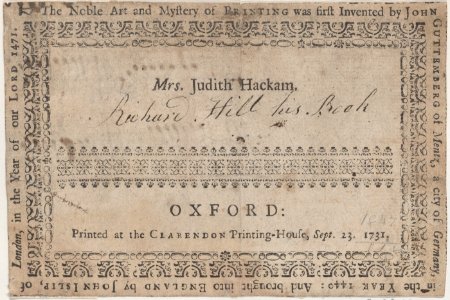 The Noble Art and Mystery of PRINTING was first Invented by JOHN
GUTTEMBERG of Mentz, a city of Germany,
in the YEAR 1440: and brought into ENGLAND by JOHN ISLIP, of
London, in the Year of our LORD 1471.
Mrs. Judith Hackam,
Richard Hill his Book
OXFORD:
Printed at the CLARENDON Printing-House, Sept. 23. 1731.